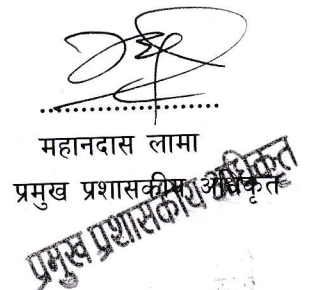 महानदास लामा
प्रमुख प्रशासकीय अधिकृत
प्रमुख प्रशासकीय अधिकृत